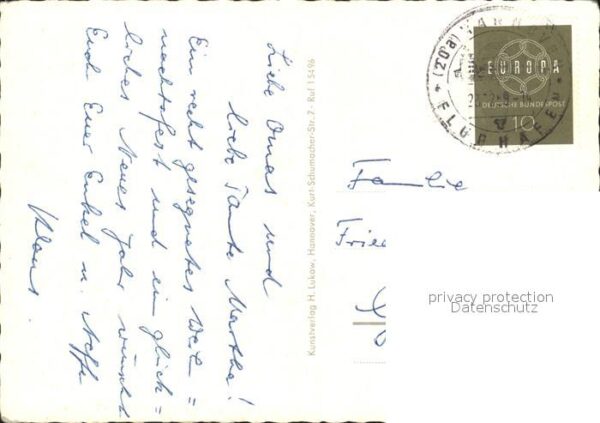 Liebe Omas und
liebe Tante Martha!
Ein recht gesegnetes Weih=
nachtsfest und ein glück=
liches Neues Jahr wünscht
Euch Euer Enkel u. Neffe
Klaus.
Kunstverlag H. Lukow, Hannover, Kurt-Schumacher-Str. 2 - Ruf 15496
(20a) HANNOVER
FLUGHAFEN
EUROPA
DEUTSCHE BUNDESPOST
10
Familie
privacy protection
Datenschutz